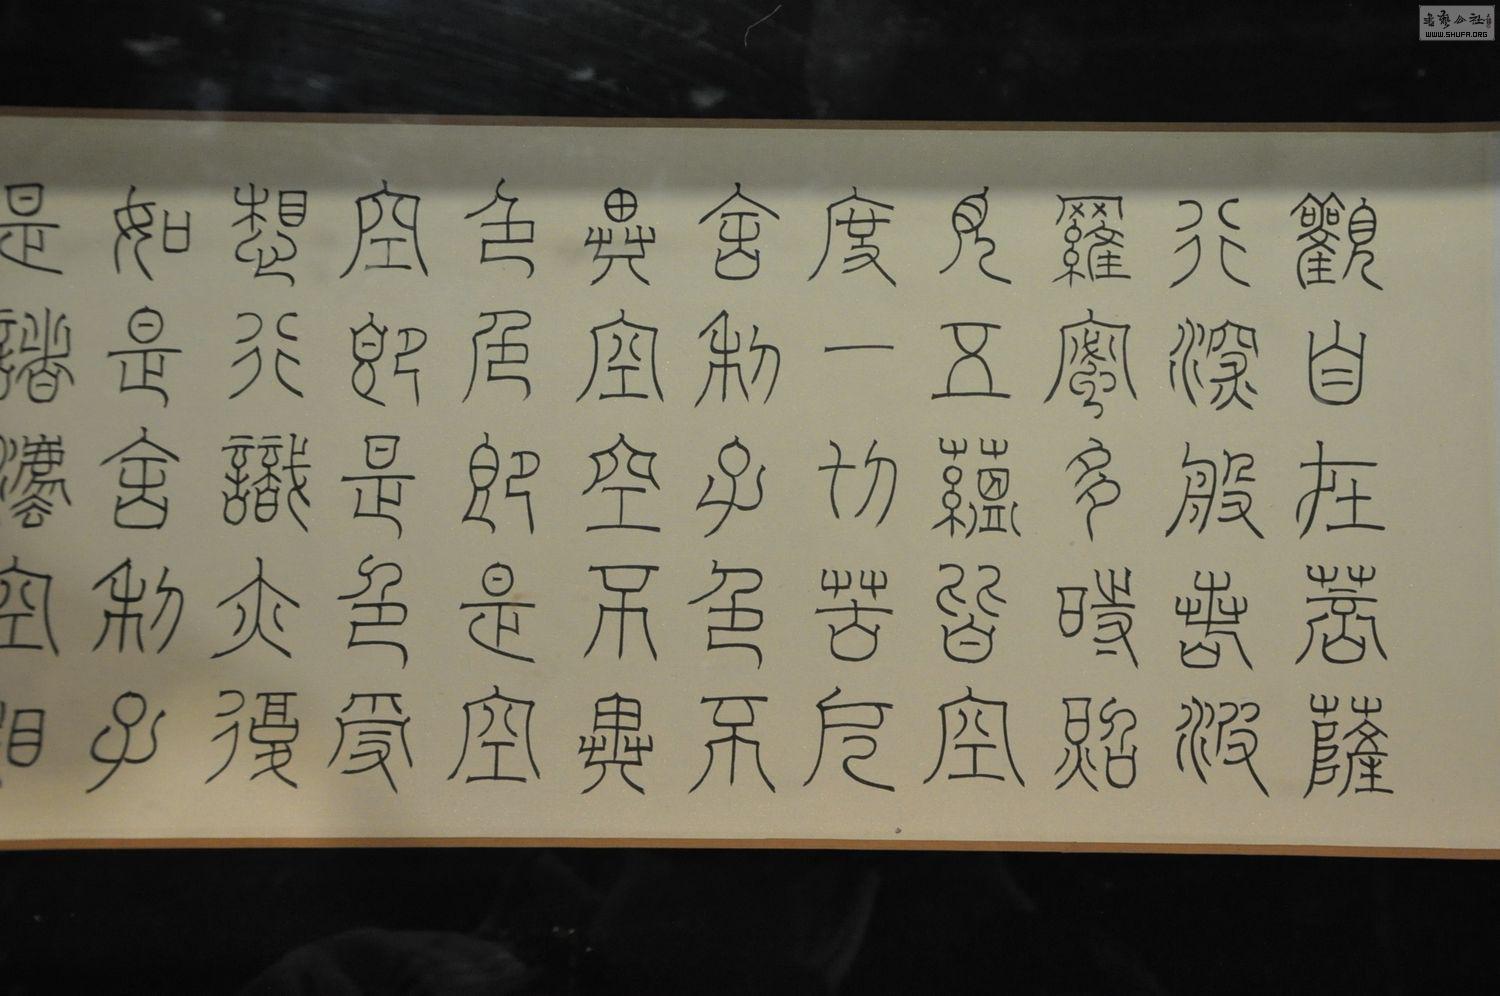 觀自在菩薩
行深般若波
羅蜜多時照
見五蘊皆空
度一切苦厄
舍利子色不
異空空不異
色色即是空
空即是色受
想行識亦復
如是舍利子
是諸法空相
WWW.SHUFA.ORG